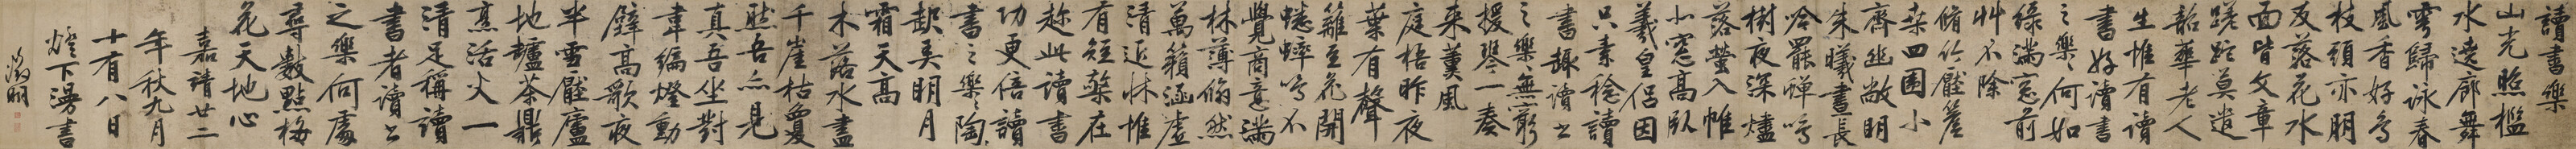 讀書樂
山光照檻
水遶廊舞
雩歸詠春
風香好鳥
枝頭亦朋
友落花水
面皆文章
蹉跎莫遣
韶華老人
生惟有讀
書好讀書
之樂〻何如
綠滿窓前
艸不除
脩竹壓簷
桒四圍小
齋幽敞明
朱曦晝長
吟罷蟬鳴
樹夜深燼
落螢入帷
北窓高臥
羲皇侶因
只素稔讀
書趣讀書
之樂〻無窮
援琴一奏
来薰風
庭梧昨夜
葉有聲
籬豆花開
蟋蟀鳴不
覺商意滿
林薄翛然
萬籟涵虛
清近牀惟
有短檠在
趂此讀書
功更倍讀
書之樂〻陶〻
起弄明月
霜天高
木落水盡
千崖枯夐
然吾亦見
真吾坐對
韋編燈動
壁高歌夜
半雪壓廬
地爐茶鼎
烹活火一
清足稱讀
書者讀書
之樂何處
尋數點梅
花天地心
嘉靖廿二
年秋九月
十有八日
燈下漫書
徵明